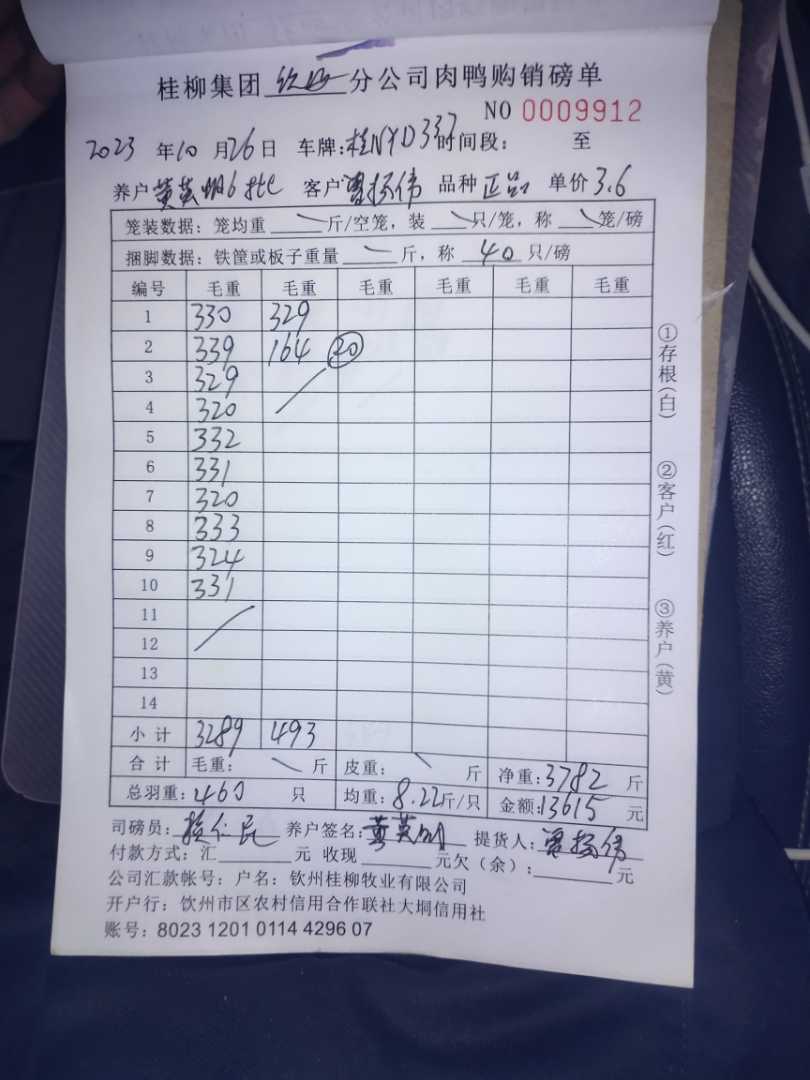 桂柳集团 钦州 分公司肉鸭购销磅单
NO 0009912
2023 年 10 月 26 日 车牌: 桂NYD337 时间段: 至
养户 黄英明6批 客户 覃扬伟 品种 正品 单价 3.6
笼装数据: 笼均重 斤/空笼, 装 只/笼, 称 笼/磅
捆脚数据: 铁筐或板子重量 斤, 称 40 只/磅
编号 毛重 毛重 毛重 毛重 毛重 毛重
1 330 329
2 339 164 20
3 329
4 320
5 332
6 331
7 320
8 333
9 324
10 331
11
12
13
14
小计 3289 493
合计 毛重: 斤 皮重: 斤 净重: 3782 斤
总羽重: 460 只 均重: 8.22 斤/只 金额: 13615 元
司磅员: 养户签名: 黄英明 提货人: 覃扬伟
付款方式: 汇 元 收现 元欠(余): 元
公司汇款帐号: 户名: 钦州桂柳牧业有限公司
开户行: 饮州市区农村信用合作联社大垌信用社
账号: 8023 1201 0114 4296 07
①存根(白)
②客户(红)
③养户(黄)